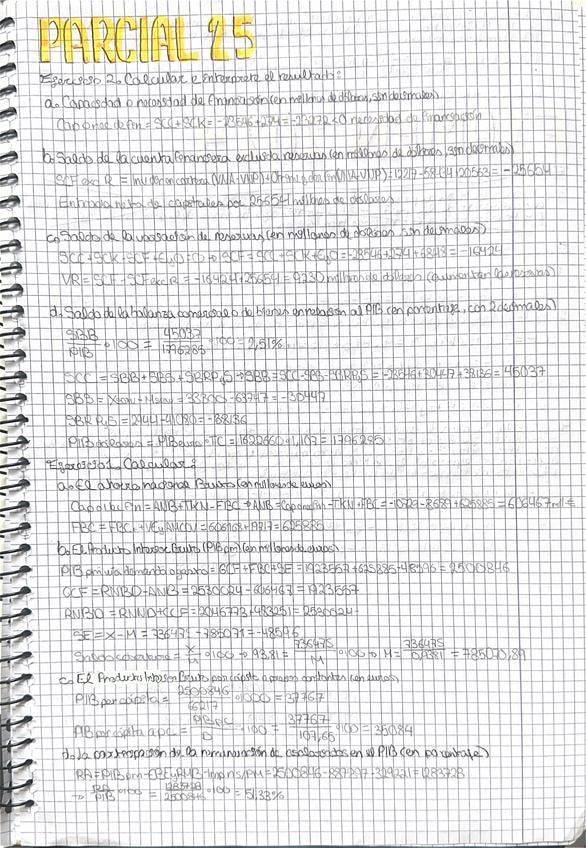 PARCIAL 25
Ejercicio 2. Calcular e interpretar el resultado:
a. Capacidad o necesidad de financiación (en millones de dólares, sin decimales)
Cap o nec de fin = SCC + SCK = -23546 + 274 = -23272 < 0 necesidad de financiación
b. Saldo de la cuenta financiera excluida reservas (en millones de dólares, sin decimales)
SCF exc R = Inv dir en cartera (VNA-VNP) + Otr inv, dfin (VNA-VNP) = 12217 - 58434 + 20563 = -25654
Entrada neta de capitales por 25654 millones de dólares
c. Saldo de la variación de reservas (en millones de dólares, sin decimales)
SCC + SCK - SCF + EyO = 0 → SCF = SCC + SCK + EyO = -23546 + 274 + 6848 = -16424
VR = SCF - SCF exc R = -16424 + 25654 = 9230 millones de dólares (aumentan las reservas)
d. Saldo de la balanza comercial o de bienes en relación al PIB (en porcentaje, con 2 decimales)
SBB/PIB · 100 = 45037/1796285 · 100 = 2,51%
SCC = SBB + SBS + SBRP,S → SBB = SCC - SBS - SBRP,S = -23546 + 30447 + 38136 = 45037
SBS = Xserv - Mserv = 33300 - 63747 = -30447
SBRP,S = 2944 - 41080 = -38136
PIB dólares = PIB euros · TC = 1622660 · 1,107 = 1796285
Ejercicio 1. Calcular:
a. El ahorro nacional Bruto (en millones de euros)
Cap o nec fin = ANB + TKN - FBC → ANB = Cap o nec fin - TKN + FBC = -10729 - 8689 + 625885 = 606467 mill €
FBC = FBCF + VE y AMCOV = 606168 + 19717 = 625885
b. El Producto Interior Bruto (PIBpm) (en millones de euros)
PIBpm vía demanda o gasto = GCF + FBC + SE = 1923557 + 625885 - 48596 = 2500846
GCF = RNBD - ANB = 2530024 - 606467 = 1923557
RNBD = RNND + CCF = 2046773 + 483251 = 2530024
SE = X - M = 736475 - 785071 = -48596
= X/M · 100 → 93,81 = 736475/M · 100 → M = 736475/0,9381 = 785070,89
c. El Producto Interior Bruto per cápita a precios constantes (en euros)
PIB per cápita = 2500846/66217 · 1000 = 37767
PIB per cápita a pc = PIBpc/D · 100 = 37767/107,65 · 100 = 35084
d. La participación de la remuneración de asalariados en el PIB (en porcentaje)
RA = PIBpm - EBE y RMB - Impn s/PM = 2500846 - 887897 - 329221 = 1283728
→ RA/PIB · 100 = 1283728/2500846 · 100 = 51,33%